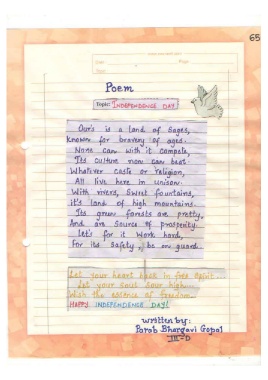 65
Poem
Topic: INDEPENDENCE DAY
Our's is a land of Sages,
Known for bravery of ages.
None can with it compete,
Its culture none can beat.
Whatever caste or religion,
All live here in unison.
With rivers, Sweet fountains,
it's land of high mountains.
Its green forests are pretty,
And are Source of prosperity.
Let's for it Work hard,
For its Safety, be on guard.
Let your heart bask in free Spirit...
Let your soul Soar high...
With the essence of freedom...
HAPPY INDEPENDENCE DAY!
written by:
Parab Bhargavi Gopal
III-D